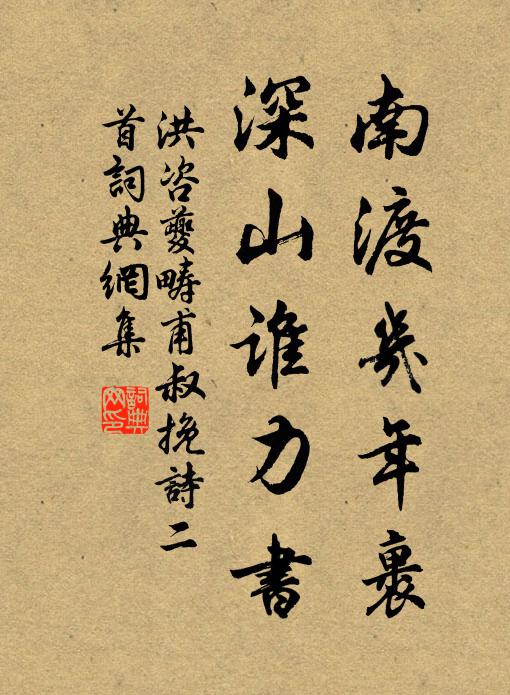 南渡幾年裏
深山誰力書
洪咨夔畴甫叔挽詩二
首詞典網集
詞典網印